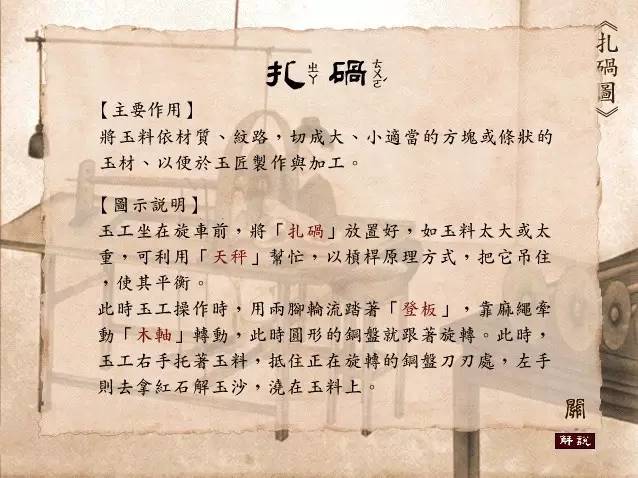 《扎碢圖》
扎ㄓㄚ 碢ㄊㄨㄛˊ
【主要作用】
將玉料依材質、紋路，切成大、小適當的方塊或條狀的
玉材、以便於玉匠製作與加工。
【圖示說明】
玉工坐在旋車前，將「扎碢」放置好，如玉料太大或太
重，可利用「天秤」幫忙，以槓桿原理方式，把它吊住
，使其平衡。
此時玉工操作時，用兩腳輪流踏著「登板」，靠麻繩牽
動「木軸」轉動，此時圓形的鋼盤就跟著旋轉。此時，
玉工右手托著玉料，抵住正在旋轉的鋼盤刀刃處，左手
則去拿紅石解玉沙，澆在玉料上。
關
解說